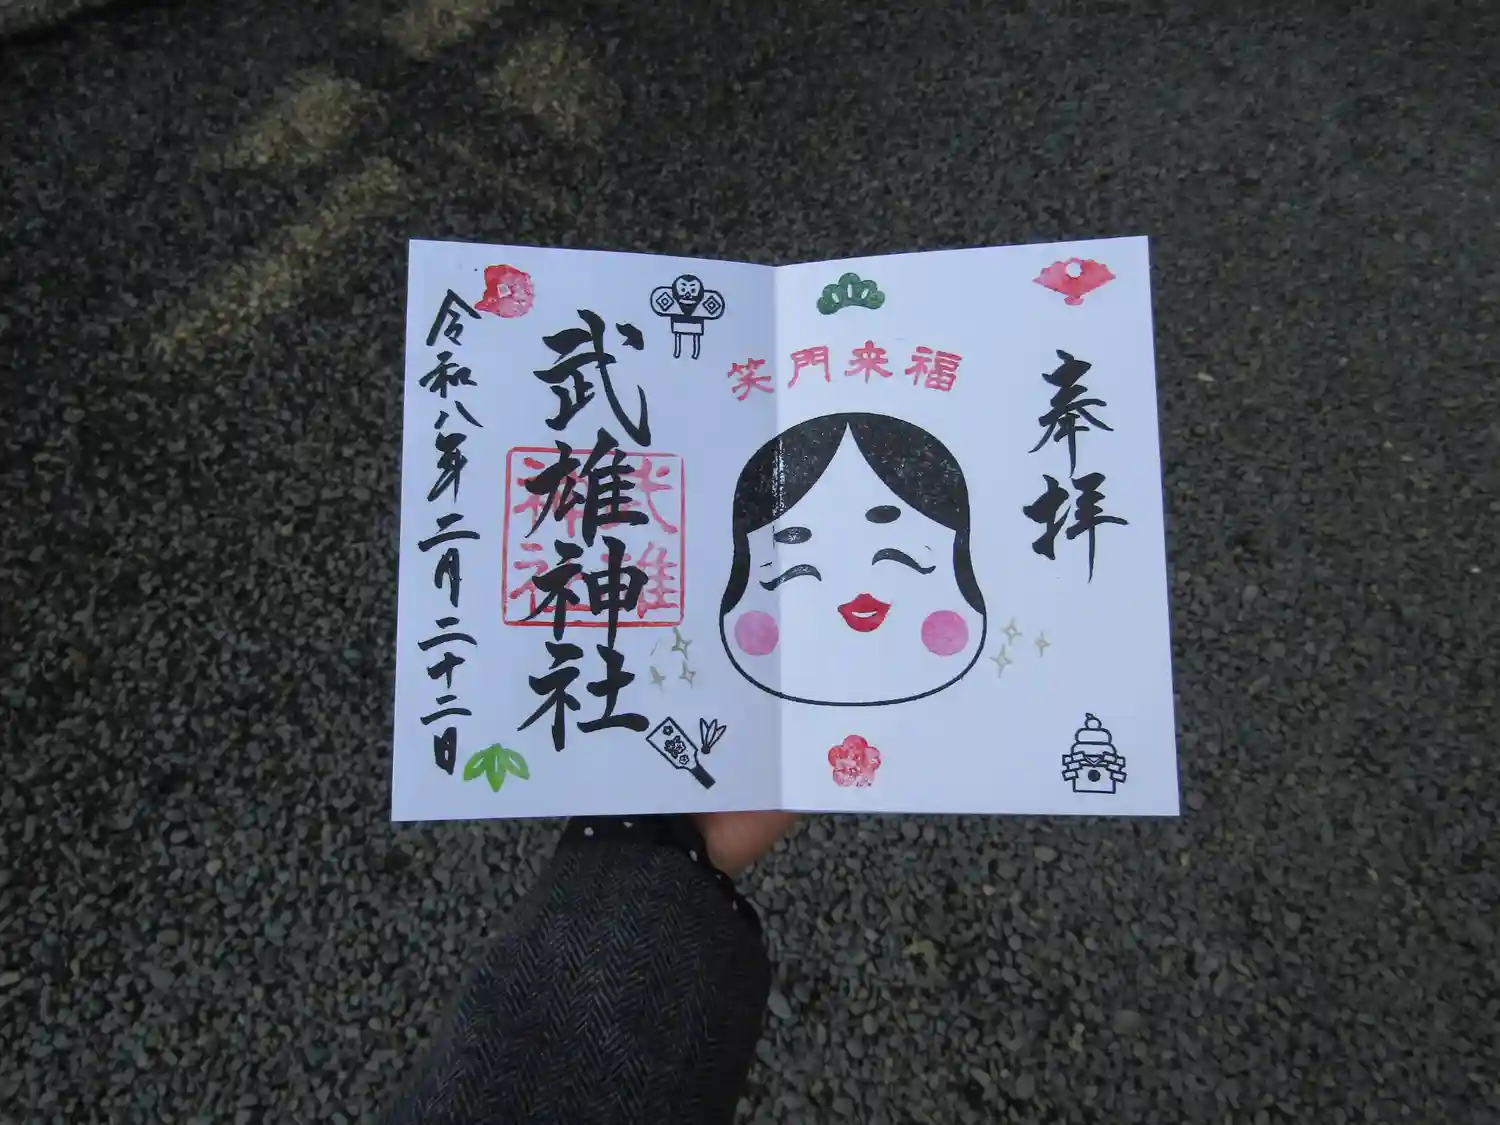 奉拝
笑門来福
武雄神社
武雄
神社
令和八年二月二十二日